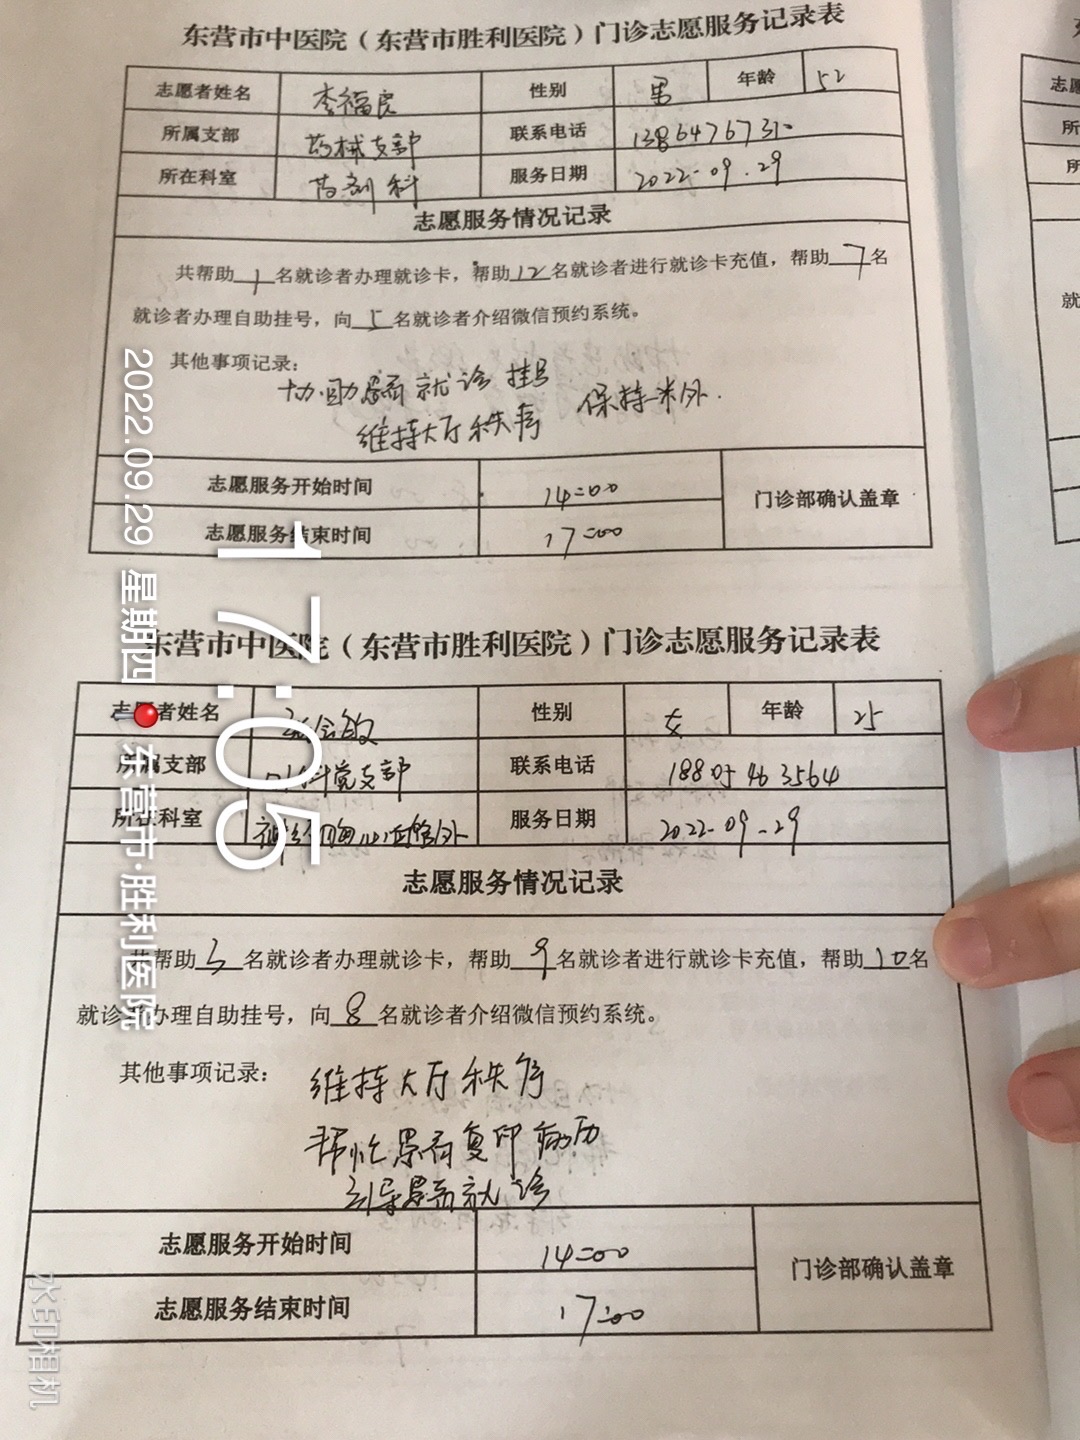 东营市中医院（东营市胜利医院）门诊志愿服务记录表
志愿者姓名 李福良 性别 男 年龄 52
所属支部 药械支部 联系电话 1386476731
所在科室 药剂科 服务日期 2022-09.29
志愿服务情况记录
共帮助1名就诊者办理就诊卡，帮助12名就诊者进行就诊卡充值，帮助7名
就诊者办理自助挂号，向5名就诊者介绍微信预约系统。
其他事项记录：
协助患者就诊 挂号 保持一米外.
维持大厅秩序
志愿服务开始时间 14:00 门诊部确认盖章
志愿服务结束时间 17:00
东营市中医院（东营市胜利医院）门诊志愿服务记录表
志愿者姓名 性别 女 年龄 25
所属支部 内科党支部 联系电话 18805463564
所在科室 服务日期 2022-09-29
志愿服务情况记录
共帮助3名就诊者办理就诊卡，帮助9名就诊者进行就诊卡充值，帮助10名
就诊者办理自助挂号，向8名就诊者介绍微信预约系统。
其他事项记录：
维持大厅秩序
帮忙患者复印病历
引导患者就诊
志愿服务开始时间 14:00 门诊部确认盖章
志愿服务结束时间 17:00
17:05
2022.09.29 星期四 东营市·胜利医院
水印相机
志愿
所
所
就